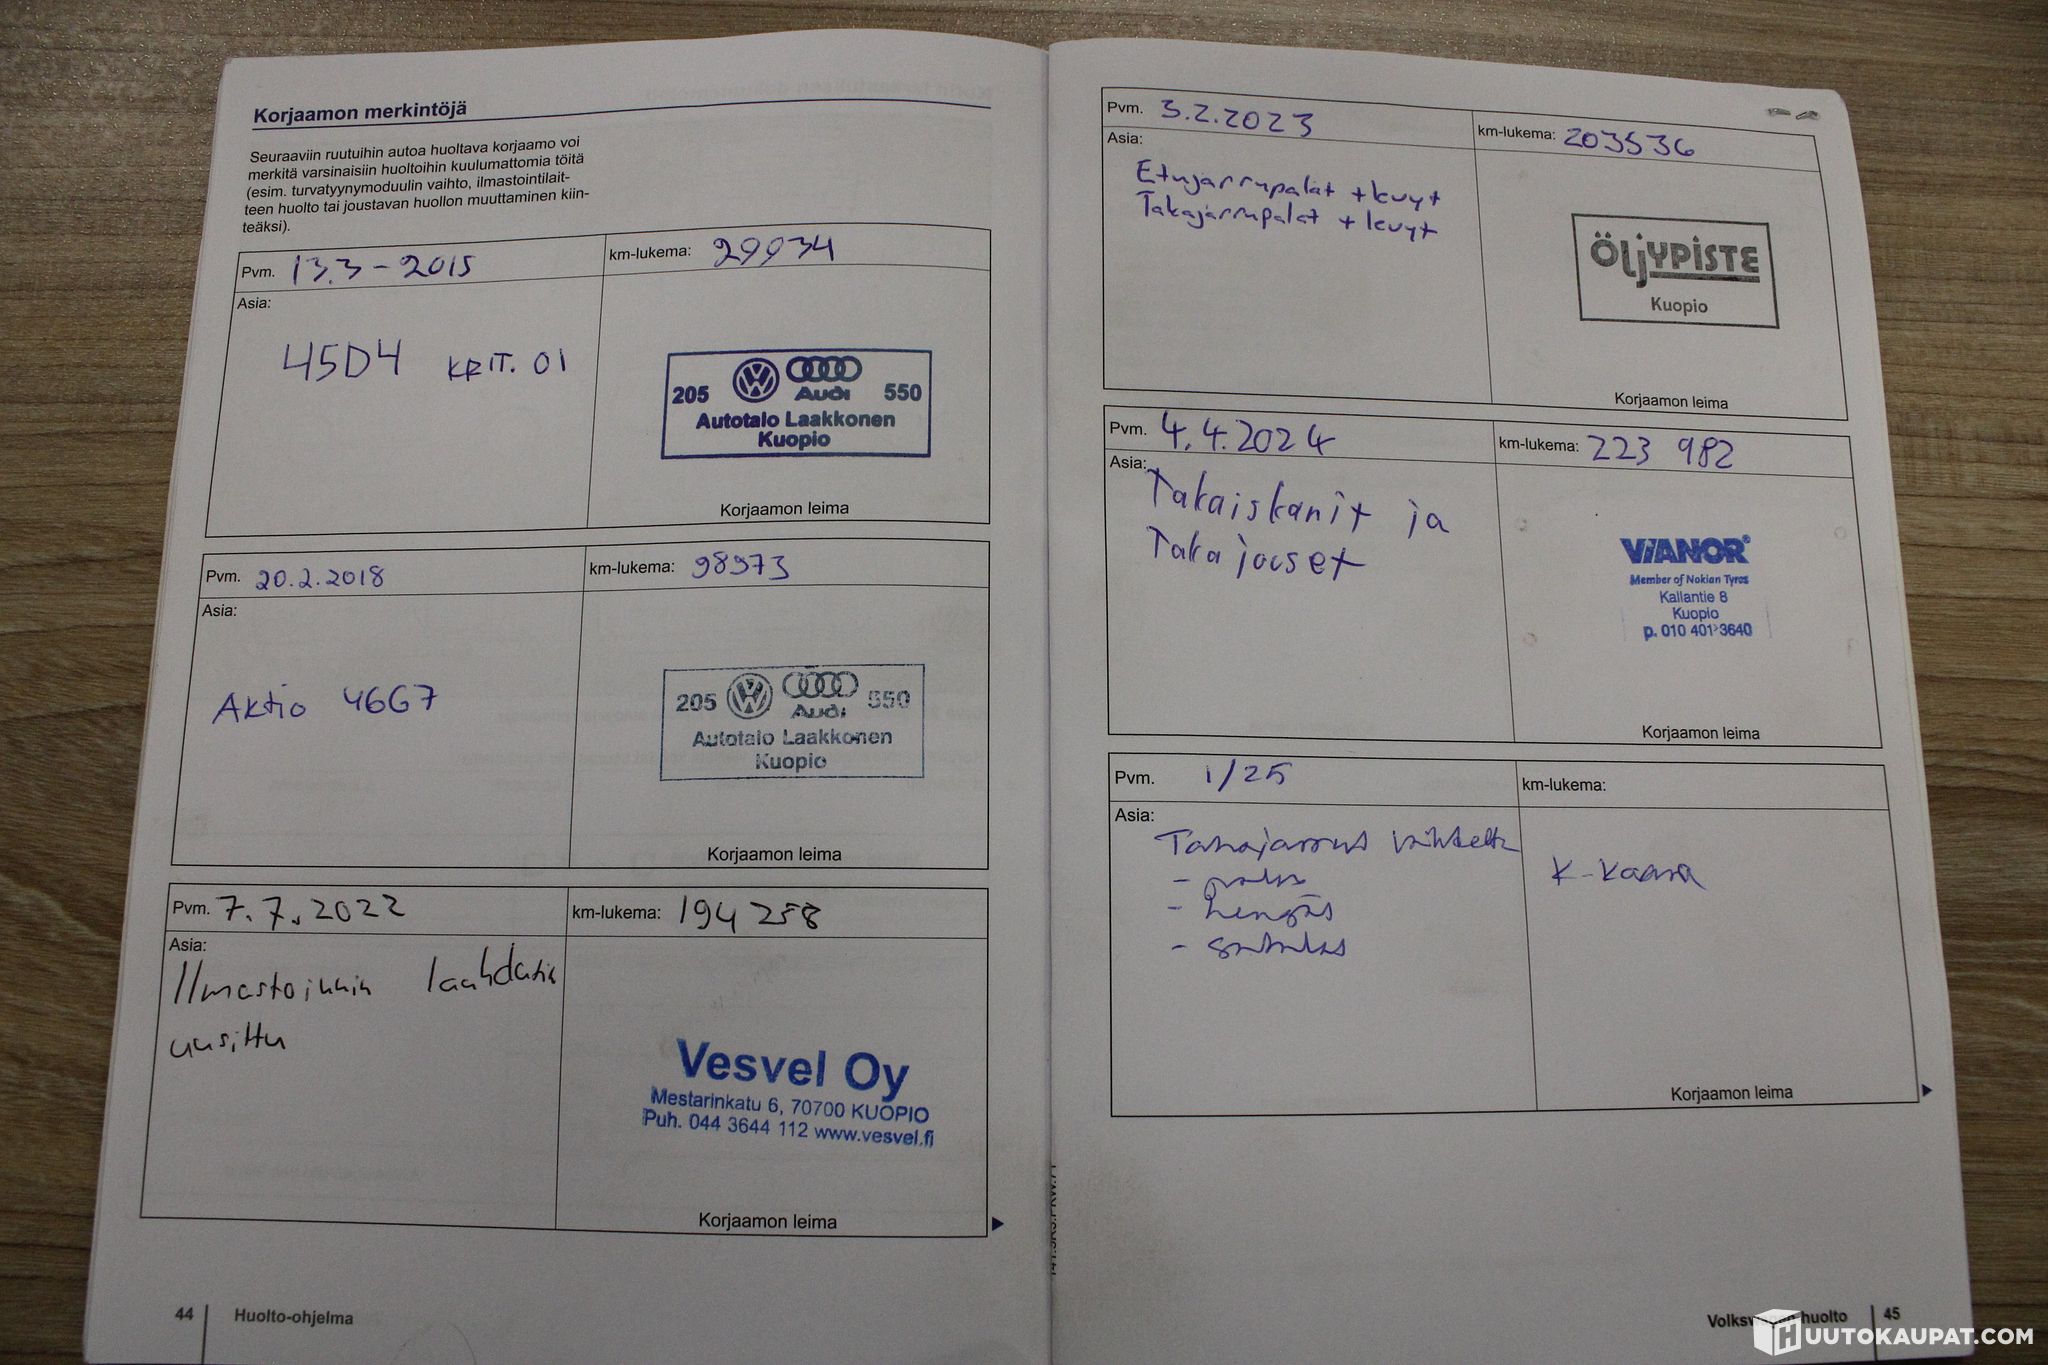 Korjaamon merkintöjä
Seuraaviin ruutuihin autoa huoltava korjaamo voi
merkitä varsinaisiin huoltoihin kuulumattomia töitä
(esim. turvatyynymoduulin vaihto, ilmastointilait-
teen huolto tai joustavan huollon muuttaminen kiin-
teäksi).
Pvm. 13.3-2015 km-lukema: 29934
Asia:
45D4 KRIT. 01
205 Audi 550
Autotalo Laakkonen
Kuopio
Korjaamon leima
Pvm. 20.2.2018 km-lukema: 98973
Asia:
Aktio 46G7
205 Audi 550
Autotalo Laakkonen
Kuopio
Korjaamon leima
Pvm. 7.7.2022 km-lukema: 194 258
Asia:
Ilmastoinnin lauhdutin
uusittu
Vesvel Oy
Mestarinkatu 6, 70700 KUOPIO
Puh. 044 3644 112 www.vesvel.fi
Korjaamon leima
44 Huolto-ohjelma
Pvm. 3.2.2023 km-lukema: 203536
Asia:
Etujarrupalat + levyt
Takajarrupalat + levyt
ÖLJYPISTE
Kuopio
Korjaamon leima
Pvm. 4.4.2024 km-lukema: 223 982
Asia:
Takaiskarit ja
Takajouset
VIANOR
Member of Nokian Tyres
Kallantie 8
Kuopio
p. 010 401 3640
Korjaamon leima
Pvm. 1/25 km-lukema:
Asia:
Takajarrut
- palat
-
- satulat
K-Kaara
Korjaamon leima
huolto 45
HUUTOKAUPAT.COM